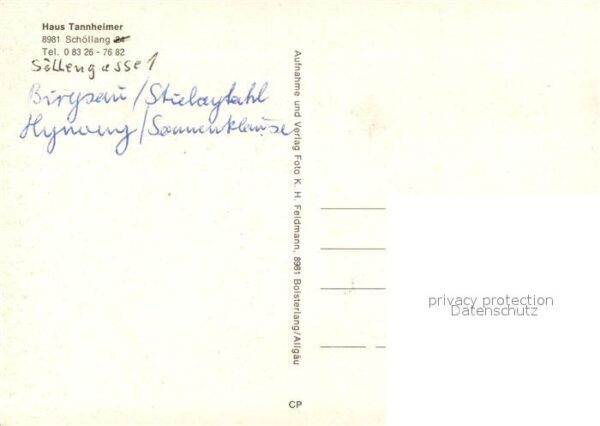 Haus Tannheimer
8981 Schöllang 24
Tel. 0 83 26 - 76 82
Söllengasse 1
Birgsau / Stiebaytahl
Hynoeng / Sonnenklause
Aufnahme und Verlag Foto K. H. Feldmann, 8981 Bolsterlang/Allgäu
CP
privacy protection
Datenschutz